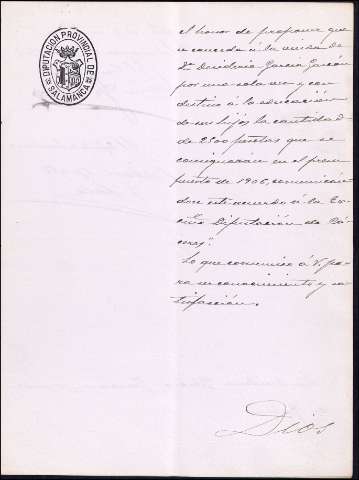 DIPUTACION PROVINCIAL DE SALAMANCA
el honor de proponer que
se conceda á la viuda de
D. Desiderio García Garzón
por una sola vez y con
destino á la educación
de sus hijos la cantidad
de 2500 pesetas que se
consignaran en el presu-
puesto de 1906, comunicán-
dose este acuerdo á la Ex-
cma Diputación de Cá-
ceres"
Lo que comunico á V. pa-
ra su conocimiento y sa-
tisfacción.
Dios